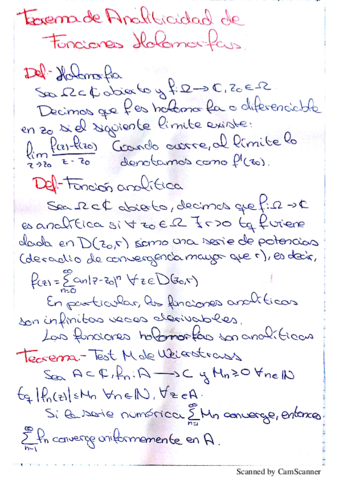 Teorema de Analiticidad de
Funciones Holomorfas
Def- Holomorfa
Sea Ω⊂ℂ abierto y f:Ω→ℂ, z₀∈Ω
Decimos que f es holomorfa o diferenciable
en z₀ si el siguiente límite existe:
lim_{z→z₀} (f(z)-f(z₀))/(z-z₀) Cuando ocurre, al límite lo
denotamos como f'(z₀).
Def- Función analítica
Sea Ω⊂ℂ abierto, decimos que f:Ω→ℂ
es analítica si ∀z₀∈Ω ∃r>0 tq f viene
dada en D(z₀,r) como una serie de potencias
(de radio de convergencia mayor que r), es decir,
f(z)=∑_{n=0}^∞ an(z-z₀)ⁿ ∀z∈D(z₀,r)
En particular, las funciones analíticas
son infinitas veces derivables.
Las funciones holomorfas son analíticas
Teorema- Test M de Weierstrass
Sea A⊂ℂ, fn:A→ℂ y Mn≥0 ∀n∈ℕ
tq |fn(z)|≤Mn ∀n∈ℕ, ∀z∈A.
Si la serie numérica ∑_{n=1}^∞ Mn converge, entonces
∑_{n=1}^∞ fn converge uniformemente en A.
Scanned by CamScanner